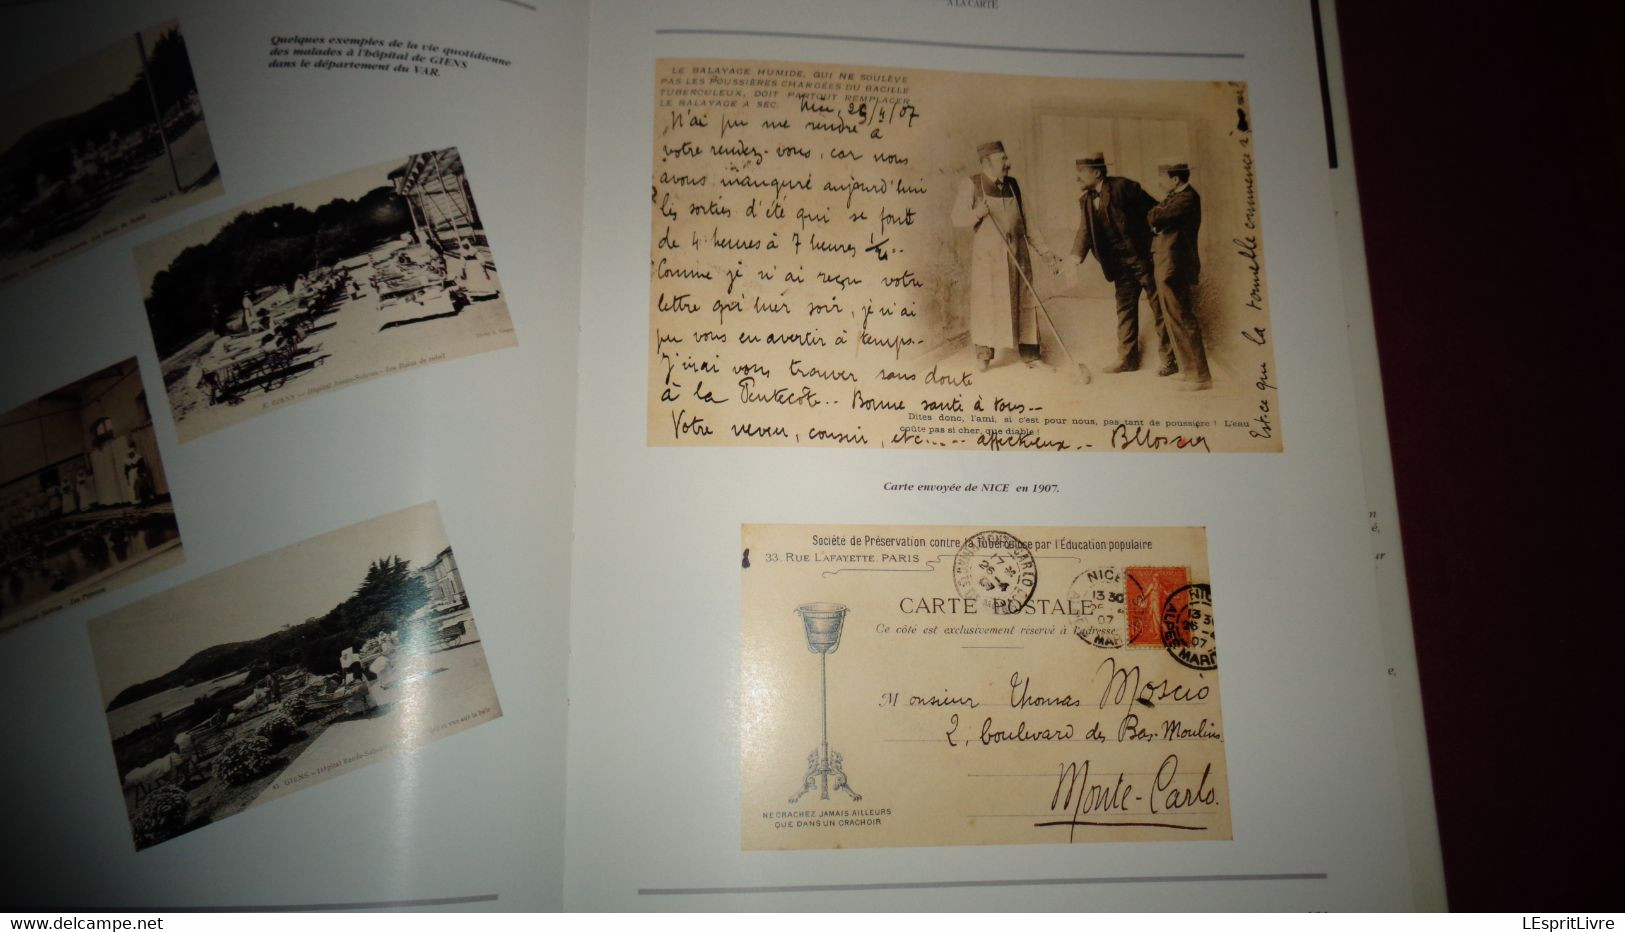 A LA CARTE
Quelques exemples de la vie quotidienne
des malades à l'hôpital de GIENS
dans le département du VAR.
GIENS — Hôpital Renée-Sabran - Les Bains de soleil
GIENS — Hôpital Renée-Sabran
et vue sur la baie
LE BALAYAGE HUMIDE, QUI NE SOULÈVE
PAS LES POUSSIÈRES CHARGÉES DU BACILLE
TUBERCULEUX, DOIT PARTOUT REMPLACER
LE BALAYAGE A SEC.
Nice, 26/4/07
N'ai pu me rendre à
votre rendez-vous, car nous
avons inauguré aujourd'hui
les sorties d'été qui se font
de 4 heures à 7 heures 1/2..
Comme je n'ai reçu votre
lettre qu'hier soir, je n'ai
pu vous en avertir à temps-
J'irai vous trouver sans doute
à la Pentecôte.. Bonne santé à tous--
Votre neveu, cousin, etc..... affectueux..
Est-ce que la tonnelle commence à
Dites donc, l'ami, si c'est pour nous, pas tant de poussière ! L'eau
coûte pas si cher, que diable !
Carte envoyée de NICE en 1907.
Société de Préservation contre la Tuberculose par l'Éducation populaire
33, RUE LAFAYETTE, PARIS
CARTE POSTALE
Ce côté est exclusivement réservé à l'adresse
NICE
13 30
07
NICE
13 30
26
07
ALPES MARIT
Monsieur Thomas Moscio
2, boulevard des Bas-Moulins
Monte-Carlo.
NE CRACHEZ JAMAIS AILLEURS
QUE DANS UN CRACHOIR
www.delcampe.net
LEspritLivre